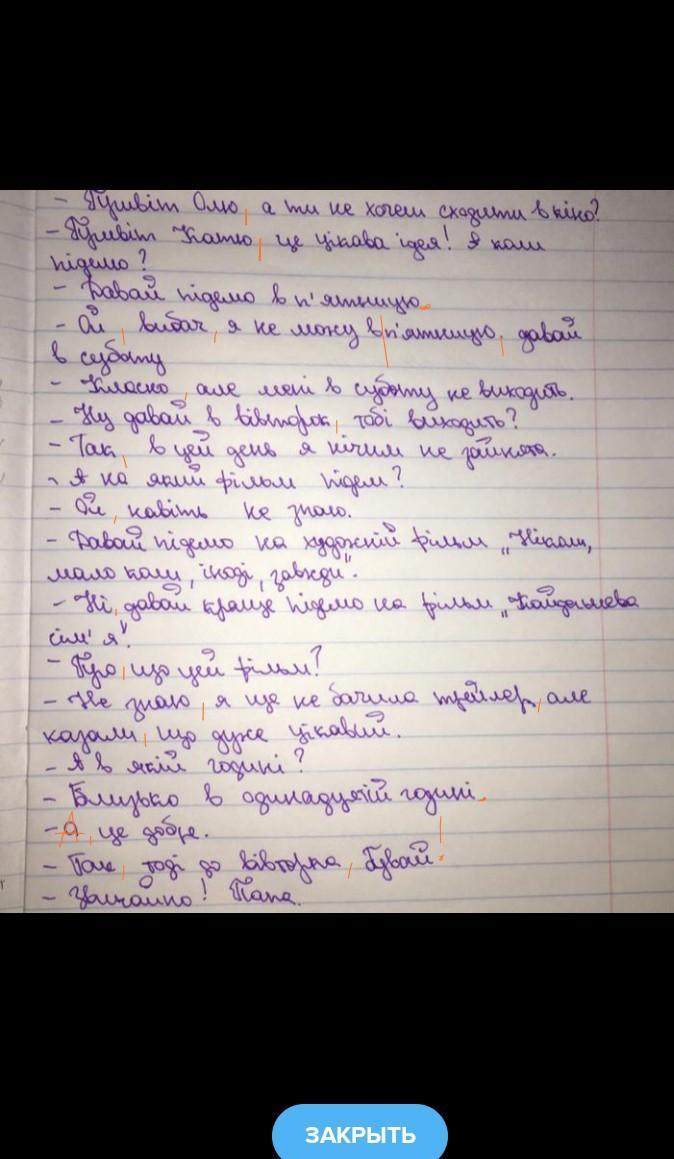 - Привіт Олю, а ти не хочеш сходити в кіно?
- Привіт Катю, це цікава ідея! А коли
підемо?
- Давай підемо в п'ятницю.
- Ой, вибач, я не можу в п'ятницю, давай
в суботу
- Класно, але мені в суботу не виходить.
- Ну давай в вівторок, тобі виходить?
- Так, в цей день я нічим не зайнята.
- А на який фільм підем?
- Ой, навіть не знаю.
- Давай підемо на художній фільм „Ніколи,
мало коли, іноді, завжди".
- Ні, давай краще підемо на фільм „Кайдашева
сім'я".
- Про, що цей фільм?
- Не знаю, я ще не бачила трейлер, але
казали, що дуже цікавий.
- А в якій годині?
- Близько в одинадцятій годині.
- А, це добре.
- Так, тоді до вівторка, бувай!
- Звичайно! Папа.
ЗАКРЫТЬ